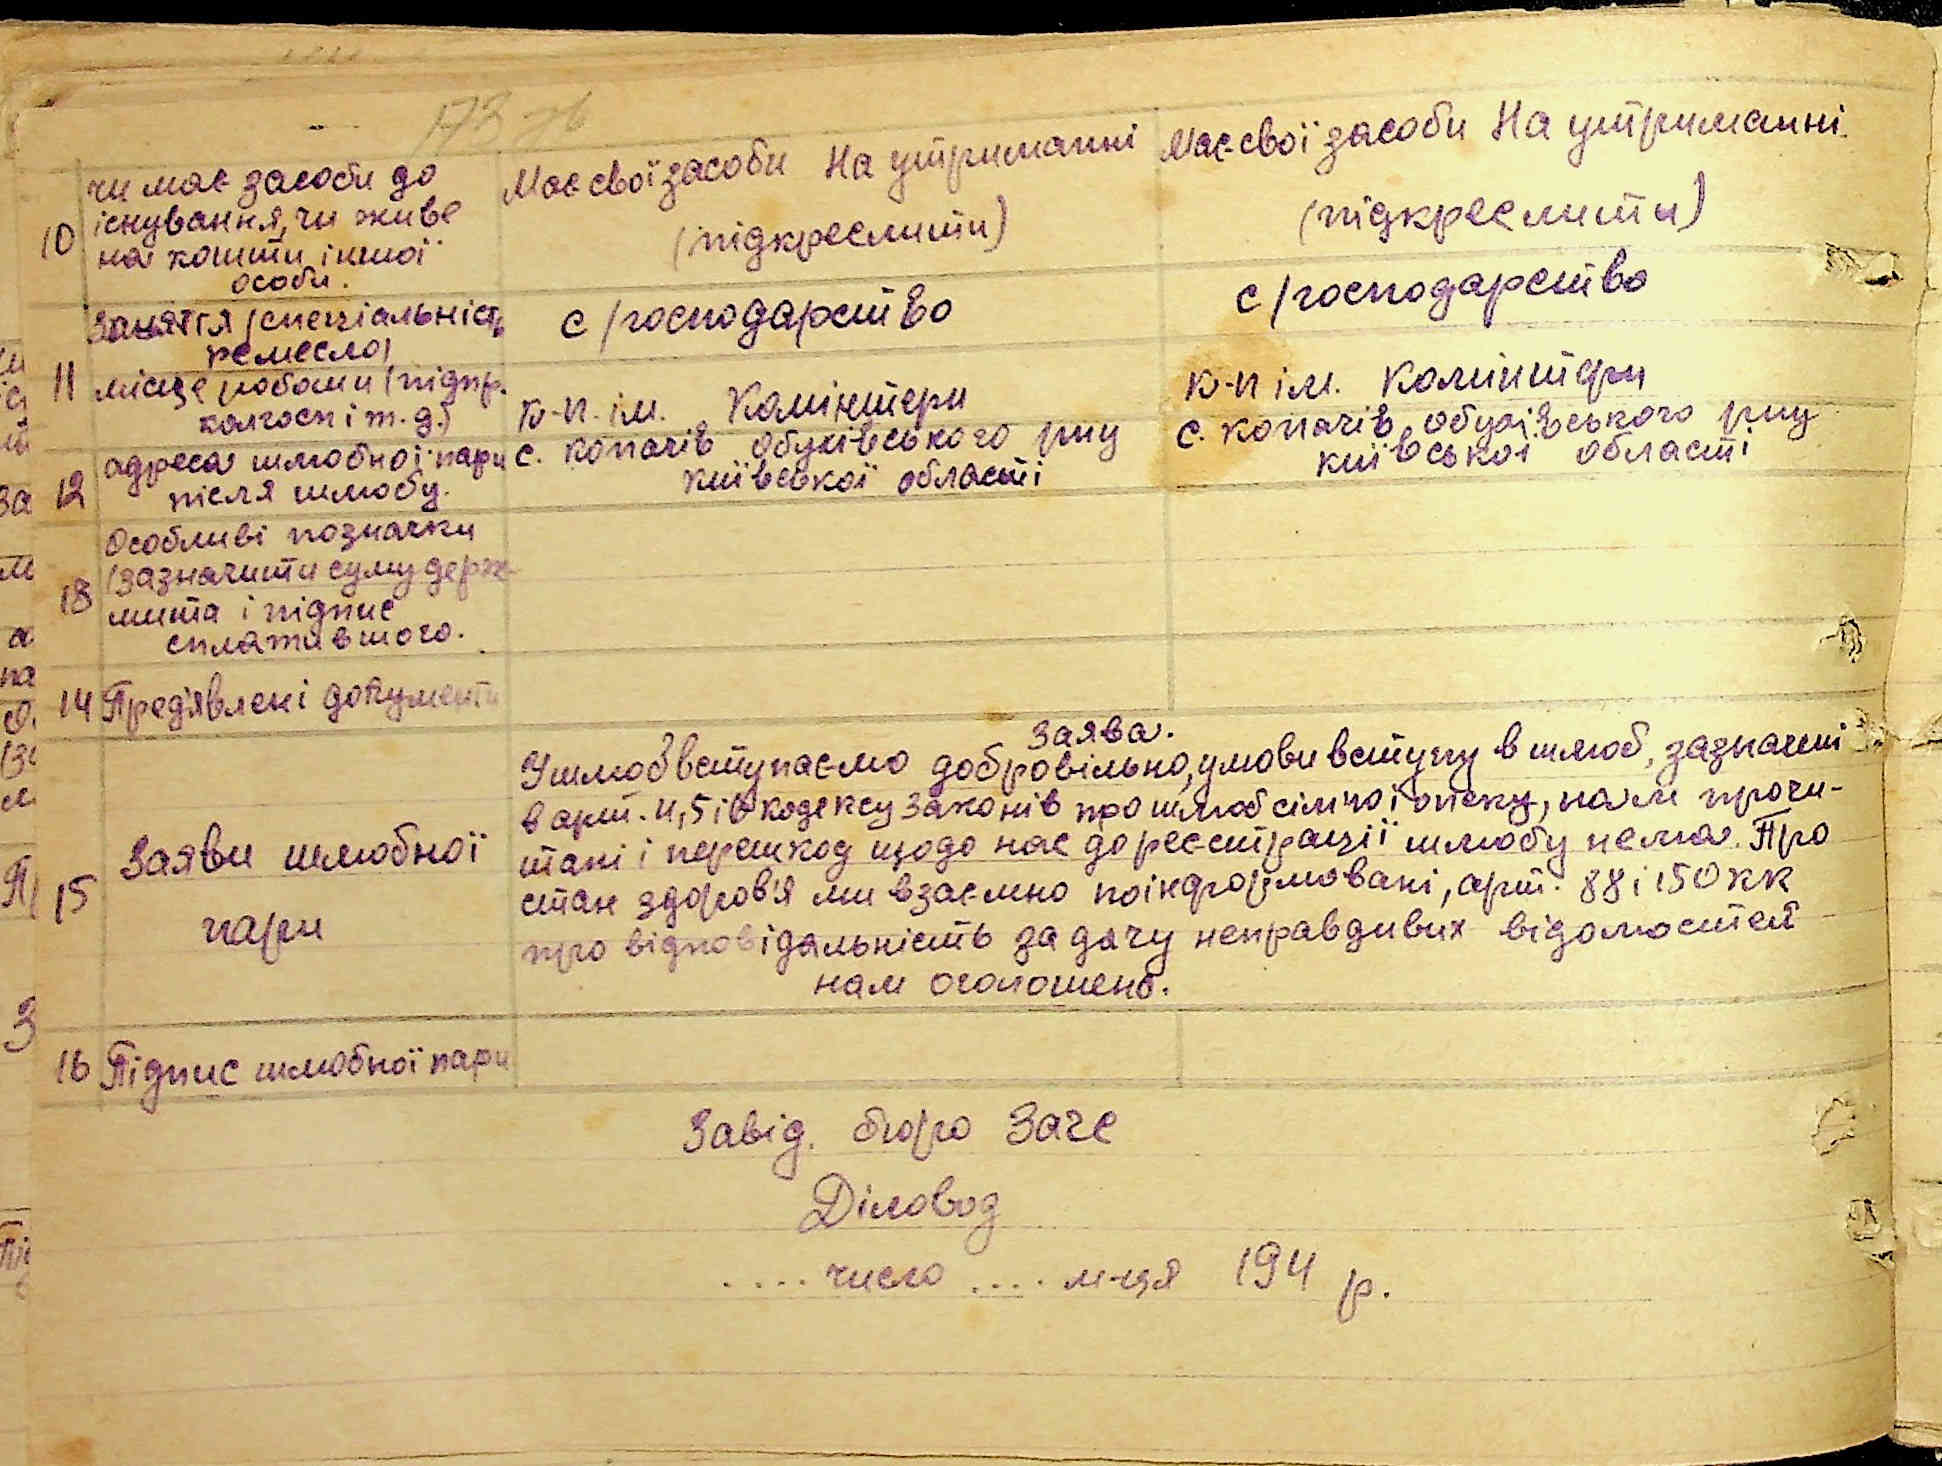 173 зв
10
чи має засоби до
існування, чи живе
на кошти іншої
особи.
Має свої засоби На утриманні
(підкреслити)
Має свої засоби На утриманні.
(підкреслити)
11
Заняття (спеціальність
ремесло)
с/господарство
с/господарство
місце роботи (підпр.
колгосп і т. д.)
к-п. ім. Комінтерн
к-п ім. Комінтерн
12
адреса шлюбної пари
після шлюбу.
с. Копачів Обухівського р-ну
київської області
с. Копачів Обухівського р-ну
київської області
13
Особливі позначки
(зазначити суму держ
мита і підпис
сплатившого.
14 Предявлені документи
15
Заяви шлюбної
пари
Заява.
У шлюб вступаємо добровільно, умови вступу в шлюб, зазначені
в арт. 4, 5 і 6 кодексу Законів про шлюб сім'ю і опеку, нам прочи-
тані і перешкод щодо нас до реєстрації шлюбу нема. Про
стан здоров'я ми взаємно поінформовані, арт. 88 і 150 КК
про відповідальність за дачу неправдивих відомостей
нам оголошено.
16 Підпис шлюбної пари
Завід. бюро Загс
Діловод
.... число .... м-ця 194 р.